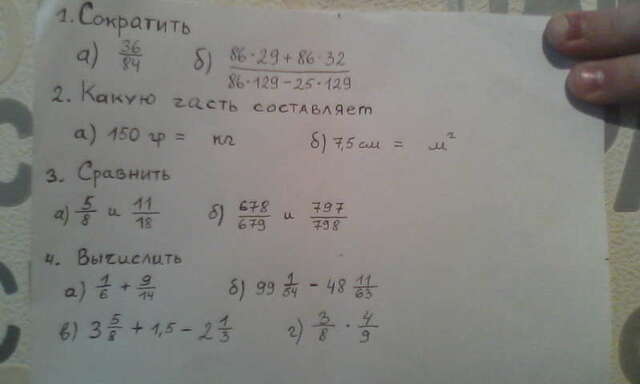 1. Сократить
а) 36/84 б) (86·29+86·32)/(86·129-25·129)
2. Какую часть составляет
а) 150 гр = кг б) 7,5 см = м²
3. Сравнить
а) 5/8 и 11/18 б) 678/679 и 797/798
4. Вычислить
а) 1/6 + 9/14 б) 99 1/54 - 48 11/63
в) 3 5/8 + 1,5 - 2 1/3 г) 3/8 · 4/9